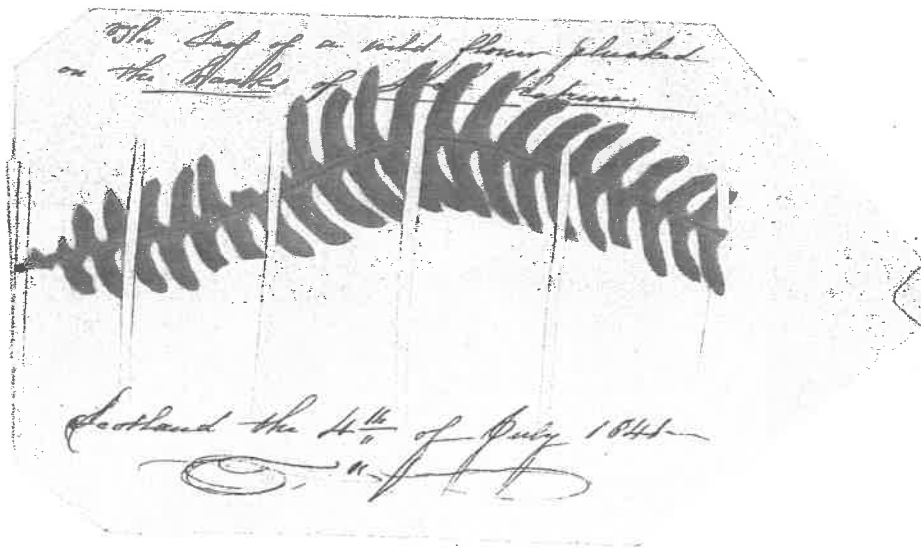 The Leaf of a wild flower plucked
on the Banks of Loch Katrine
Scotland the 4th of July 1841